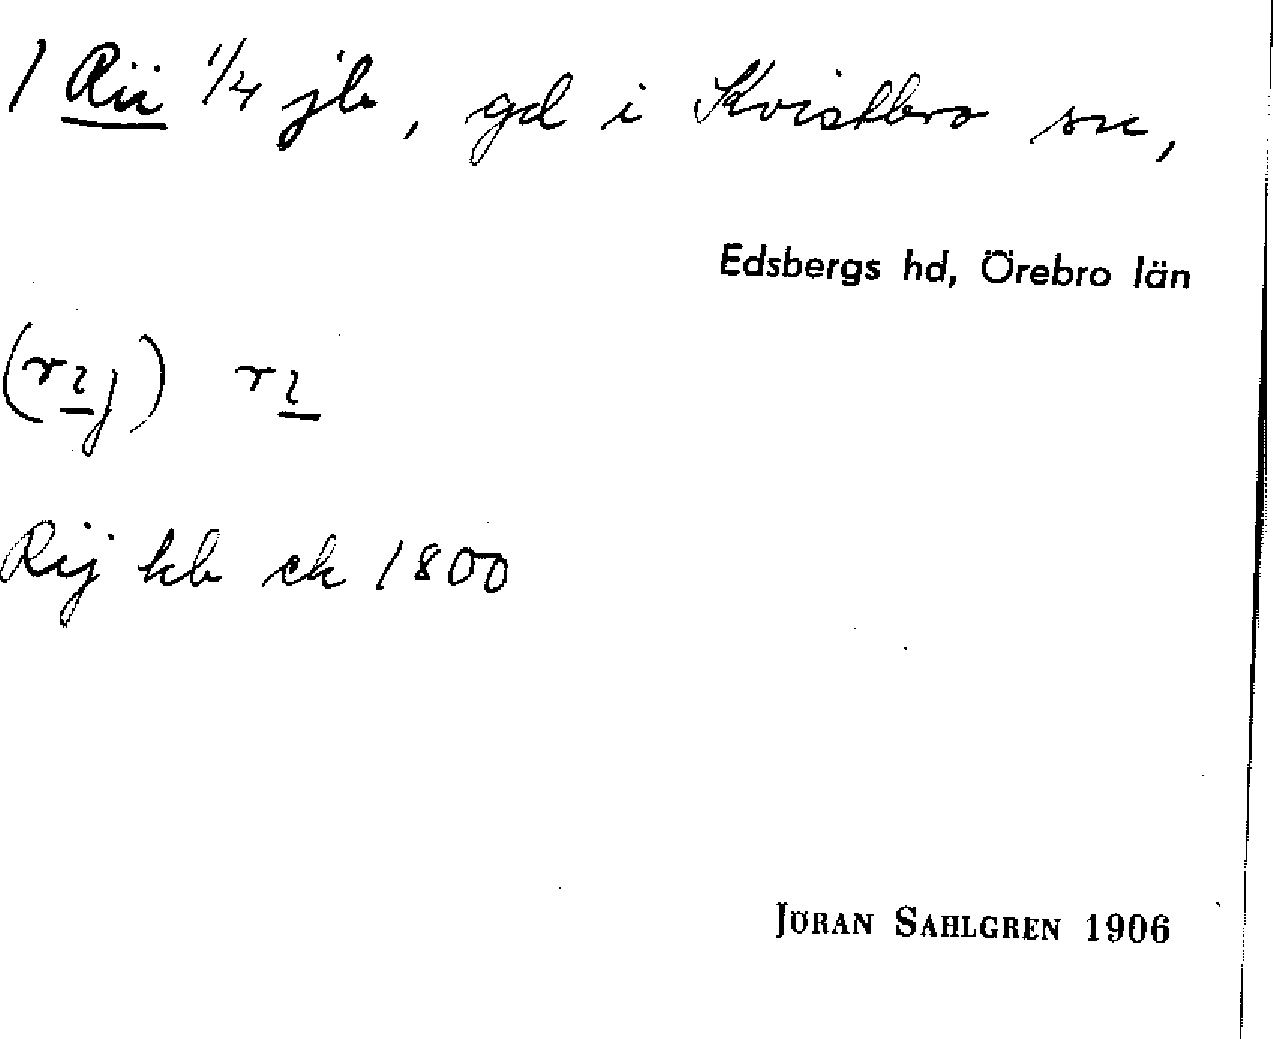 1 Rii 1/4 jb, gd i Kvistbro sn,
Edsbergs hd, Örebro län
(rɩ̱j) rɩ̱
Rij kb ck 1800
JÖRAN SAHLGREN 1906